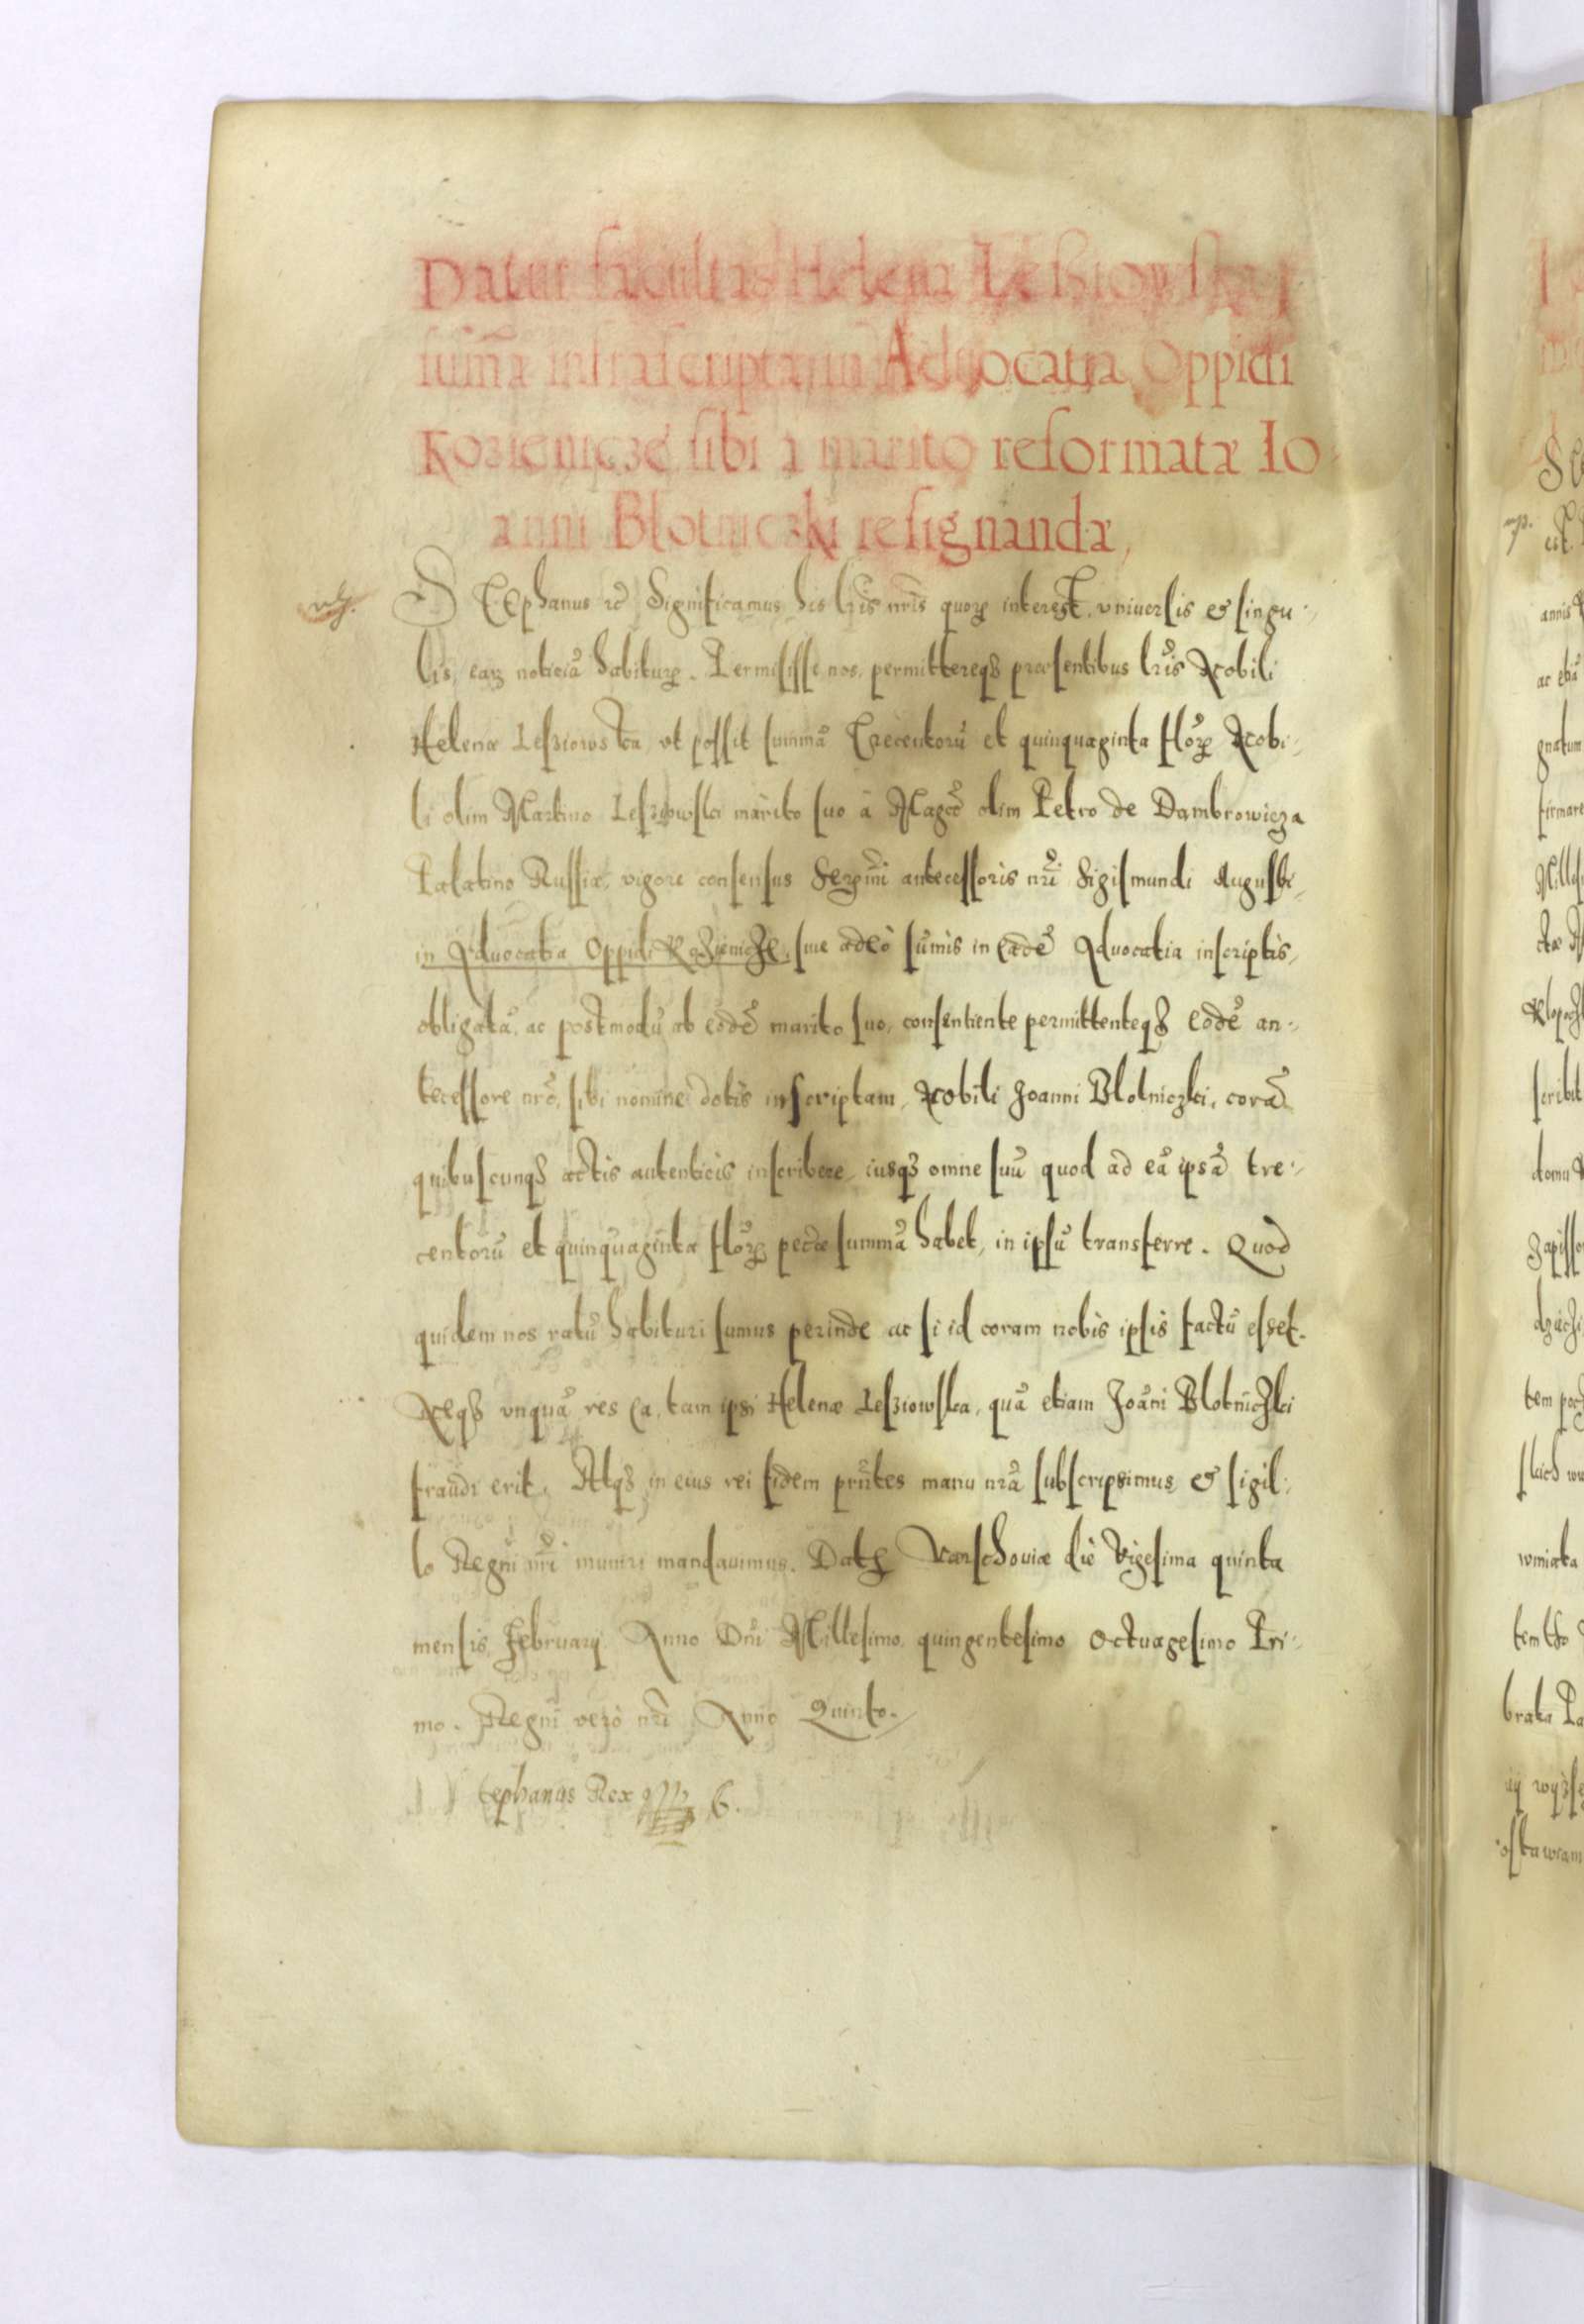 Datur facultas Helenæ Lesziowskiej
sum̃æ infrascriptæ, in Advocatia Oppidi
Kozienicze sibi a marito reformatæ Io-
anni Blotniczki resignandæ,
STEphanus rč Significamus his lr̃is nr̃is quoꝝ interest, vniuersis et singu-
lis, eaꝝ noticiã habituꝝ. Permisisse nos, permittereqꝫ præsentibus lr̃is Nobili
Helenæ Lesziowska, vt possit summã Trecentorũ et quinquaginta floꝝ Nobi-
li olim Martino Lesziowski marito suo à Magc̃o olim Petro de Dambrowicza
Palatino Russiæ, vigore consensus Serm̃i antecessoris nr̃i Sigismundi Augusti,
in Aduocatia Oppidi Kozienicze, siue adeò sum̃is in eadẽ Aduocatia inscriptis,
obligatã, ac postmodũ ab eodẽ marito suo, consentiente permittenteqꝫ eodẽ an-
tecessore nrõ, sibi nomine dotis inscriptam, Nobili Joanni Blotniczki, corã
quibuscunqꝫ actis autenticis inscribere, iusqꝫ omne suũ quod ad eã ipsã tre-
centorũ et quinquaginta floꝝ pec̃æ summã habet, in ipsũ transferre. Quod
quidem nos ratũ habituri sumus perinde ac si id coram nobis ipsis factũ esset.
Neqꝫ vnquã res ea, tam ipsi Helenæ Lesziowska, quã etiam Joãni Blotniczki
fraudi erit. Atqꝫ in eius rei fidem prñtes manu nrã subscripsimus, et sigil-
lo Regni nr̃i muniri mandauimus. Datꝫ Varschouiæ diè Vigesima quinta
mensis Februarij Anno Dñi Millesimo quingentesimo Octuagesimo Pri-
mo. Regni verò nr̃i Anno Quinto.
Stephanus Rex